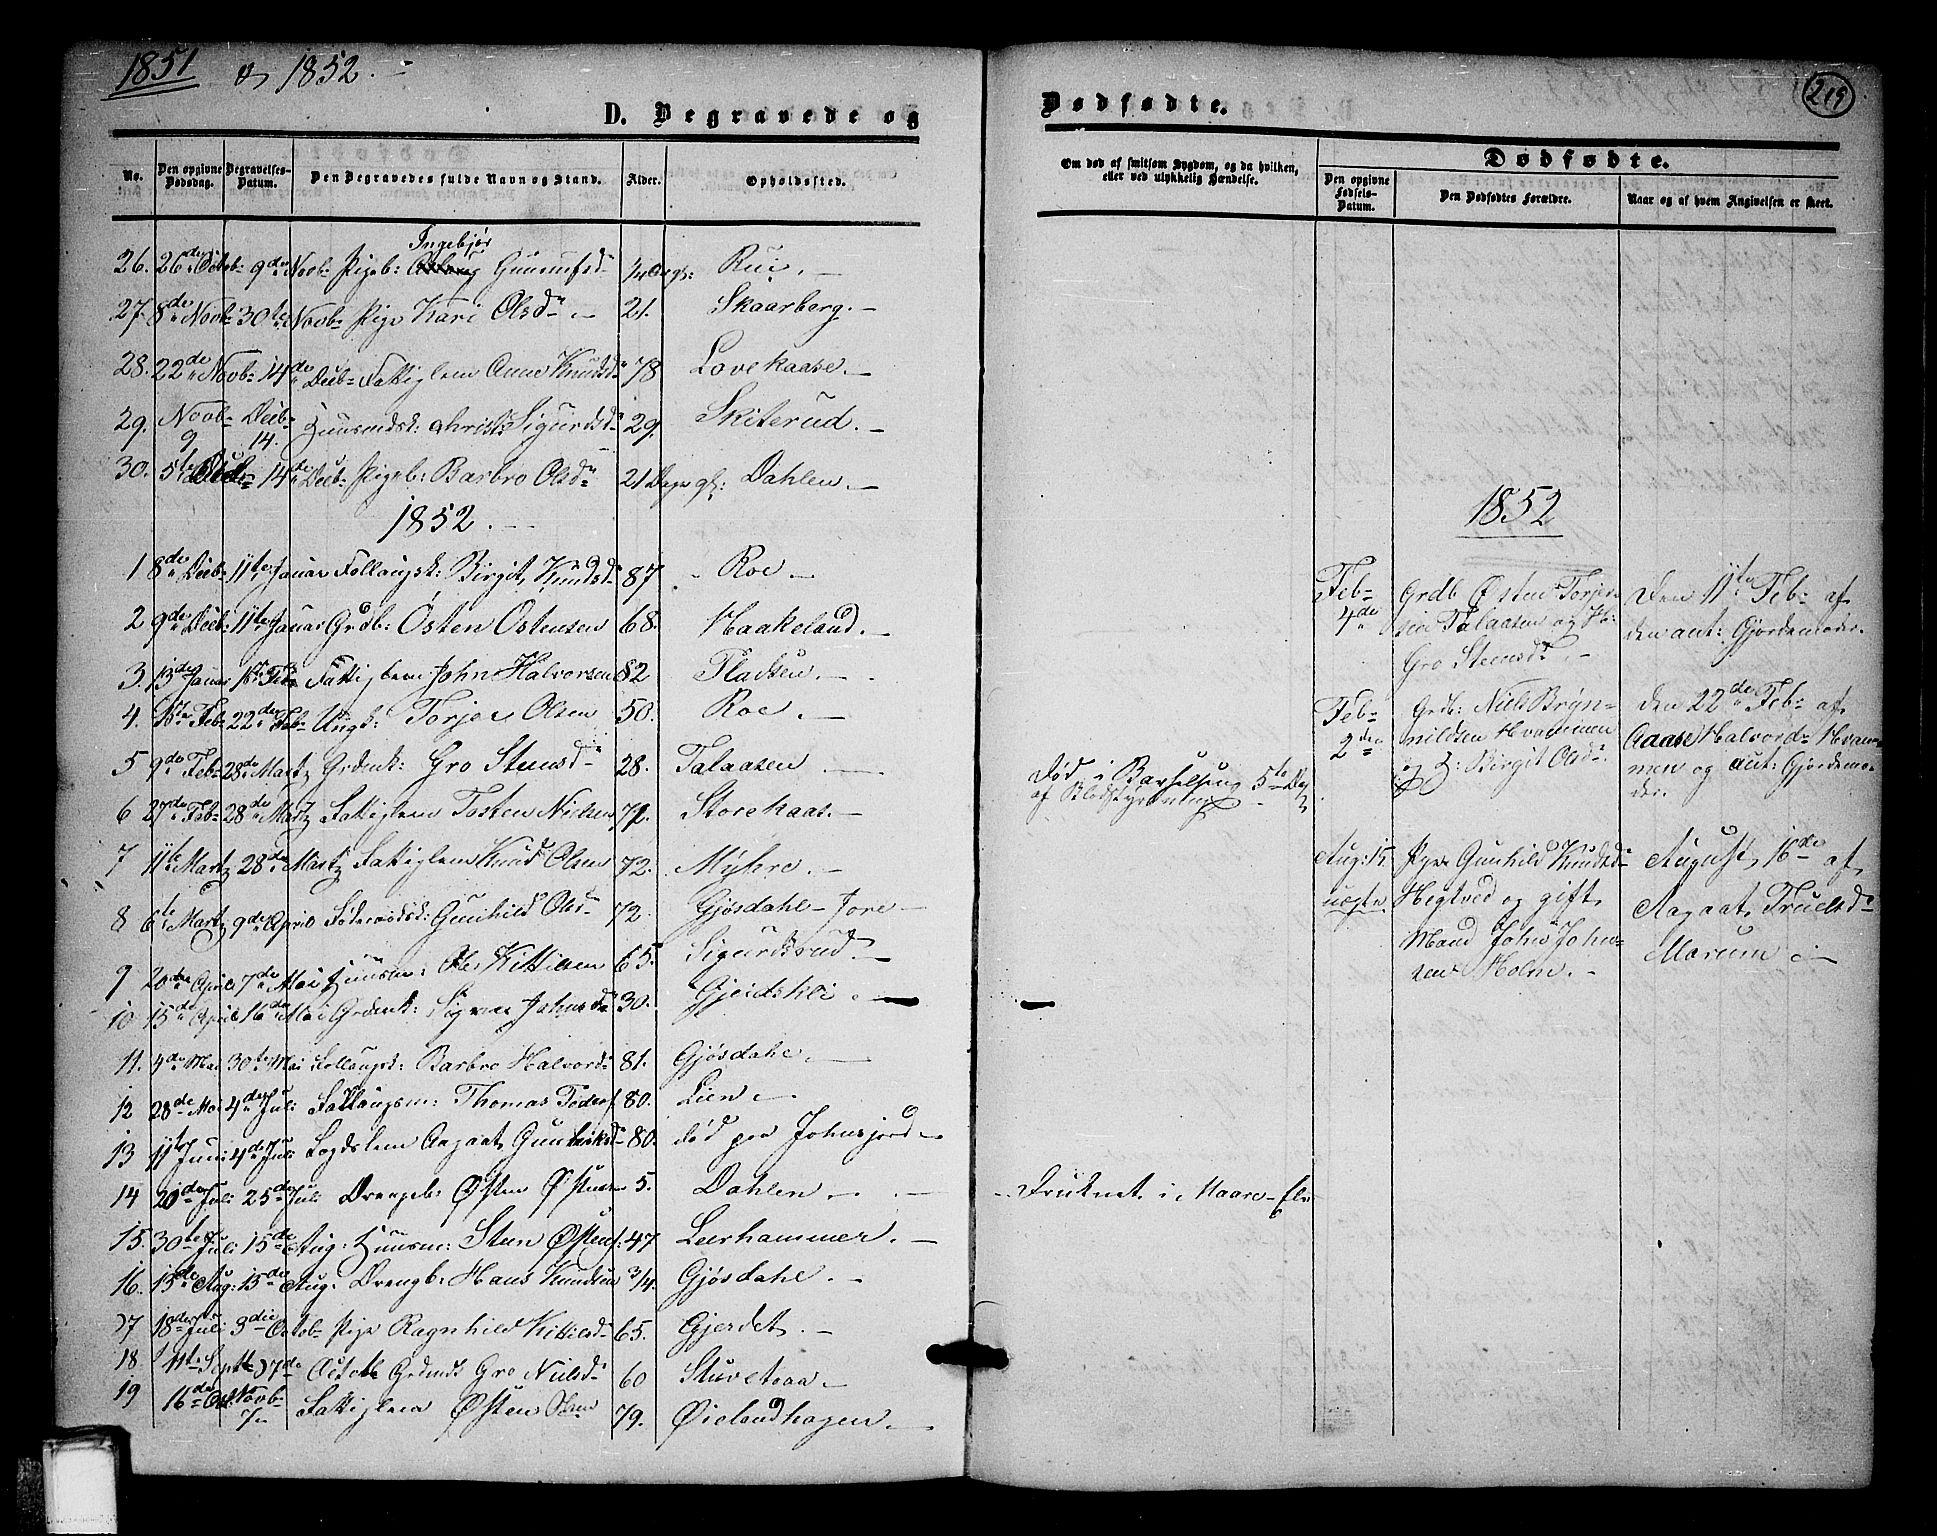 1851 og 1852. -
219
D. Begravede og Dødfødte.
No. Den opgivne Dødsdag. Begravelses-Datum. Den Begravedes fulde Navn og Stand. Alder. Opholdssted.
Om død af smitsom Sygdom, og da hvilken, eller ved ulykkelig Hændelse.
Dødfødte.
Den opgivne Fødsels-Datum. Den Dødfødtes Forældre. Naar og af hvem Angivelsen er skeet.
Ingebjør
26. 26de Octob: 9de Novb: Pigeb: Gunnufsd: 1/4 Rui. -
27. 8de Novb: 30te Novb: Pige Kari Olsd: - 21. Skaarberg. -
28. 22de Novb: 14de Decb: Fattiglem Anne Knutsd: 78 Lovekaase. -
29. Novb: 9 Decb: 14. Huusmdsk: Christi Sigurdsd: 29. Skiterud. -
30. 5te Decb: 14de Decb: Pigeb: Barbro Olsd: 21 Dage gl: Dahlen. -
1852. -
1 8de Decb: 11te Januar Follaugsk: Birgit Knudsd: 87. Roe -
2 9de Decb: 11te Januar Grdb: Østen Ostensen 68. Haakeland. -
3. 13de Januar Feb: Fattiglem John Halvorsen 82 Pladsen. -
4. Feb: 22de Feb: Ungk: Torjer Olsen 50. Roe. -
5 9de Feb: 28de Martz Grdmk: Gro Steensd: 28. Talaasen -
død i Barselseng 5te Dag
af Blodstyrtning
6 27de Feb: 28de Martz Fattiglem Tosten Nielsen 72. Storekaas. -
7 11te Martz 28de Martz Fattiglem Knud Olsen 72. Myhre. -
8 6te Martz 9de April Føderaadsk: Gunhild Olsd: 72. Gjøsdahl-Jore -
9 20de April 7de Mai Huusm: Ole Kittilsen 65. Sigurdsrud. -
10 15de April 16de Mai Grdmk: Signe Johnsd: 30. Gjeidskli -
11. 4de Mai 30te Mai Follaugsk: Barbro Halvorsd: 81. Gjøsdahl. -
12 28de Mai 4de Juli Follaugsm: Thomas Peders: 80. Lien -
13 11te Juni 4de Juli Lægdslem Aagaat Gunleiksd: 80. død paa Johnsjord -
14 20de Juli 25de Juli Drengeb: Østen Østensen 5. Dahlen - Druknet i Maare-Elv
15. 30te Juli 15de Aug: Huusm: Steen Østens: 47 Leerhammer. -
16. 13de Aug: 15de Aug: Drengb: Hans Knudsen 3/4. Gjøsdahl. -
17 18de Juli 3die Octob: Pige Ragnhild Kittilsd: 65. Gjerdet. -
18 11te Septb: 17de Octob: Grdmk Gro Nielsd: 60 Stuvetaa -
19 16de Oct: Novb: 7de Fattiglem Østen Olsen 79. Øielandhagen -
1852
Feb: 4de
Grdb Østen Torjersen Talaasen og Gro Steensd: -
Den 11te Feb: af den aut: Gjordemoder.
Feb: 2den
Grdb: Niels Brynnildsen Hvammen og H: Birgit Olsd:
Den 22de Feb: af Aase Halvord: Hvammen og aut: Gjordemoder.
Aug: 15 uægte
Pige Gunhild Knudsd: Hegtved og gift Mand John Johnsen Holm. -
August 16de af Aagaat Truelsd: Marum -